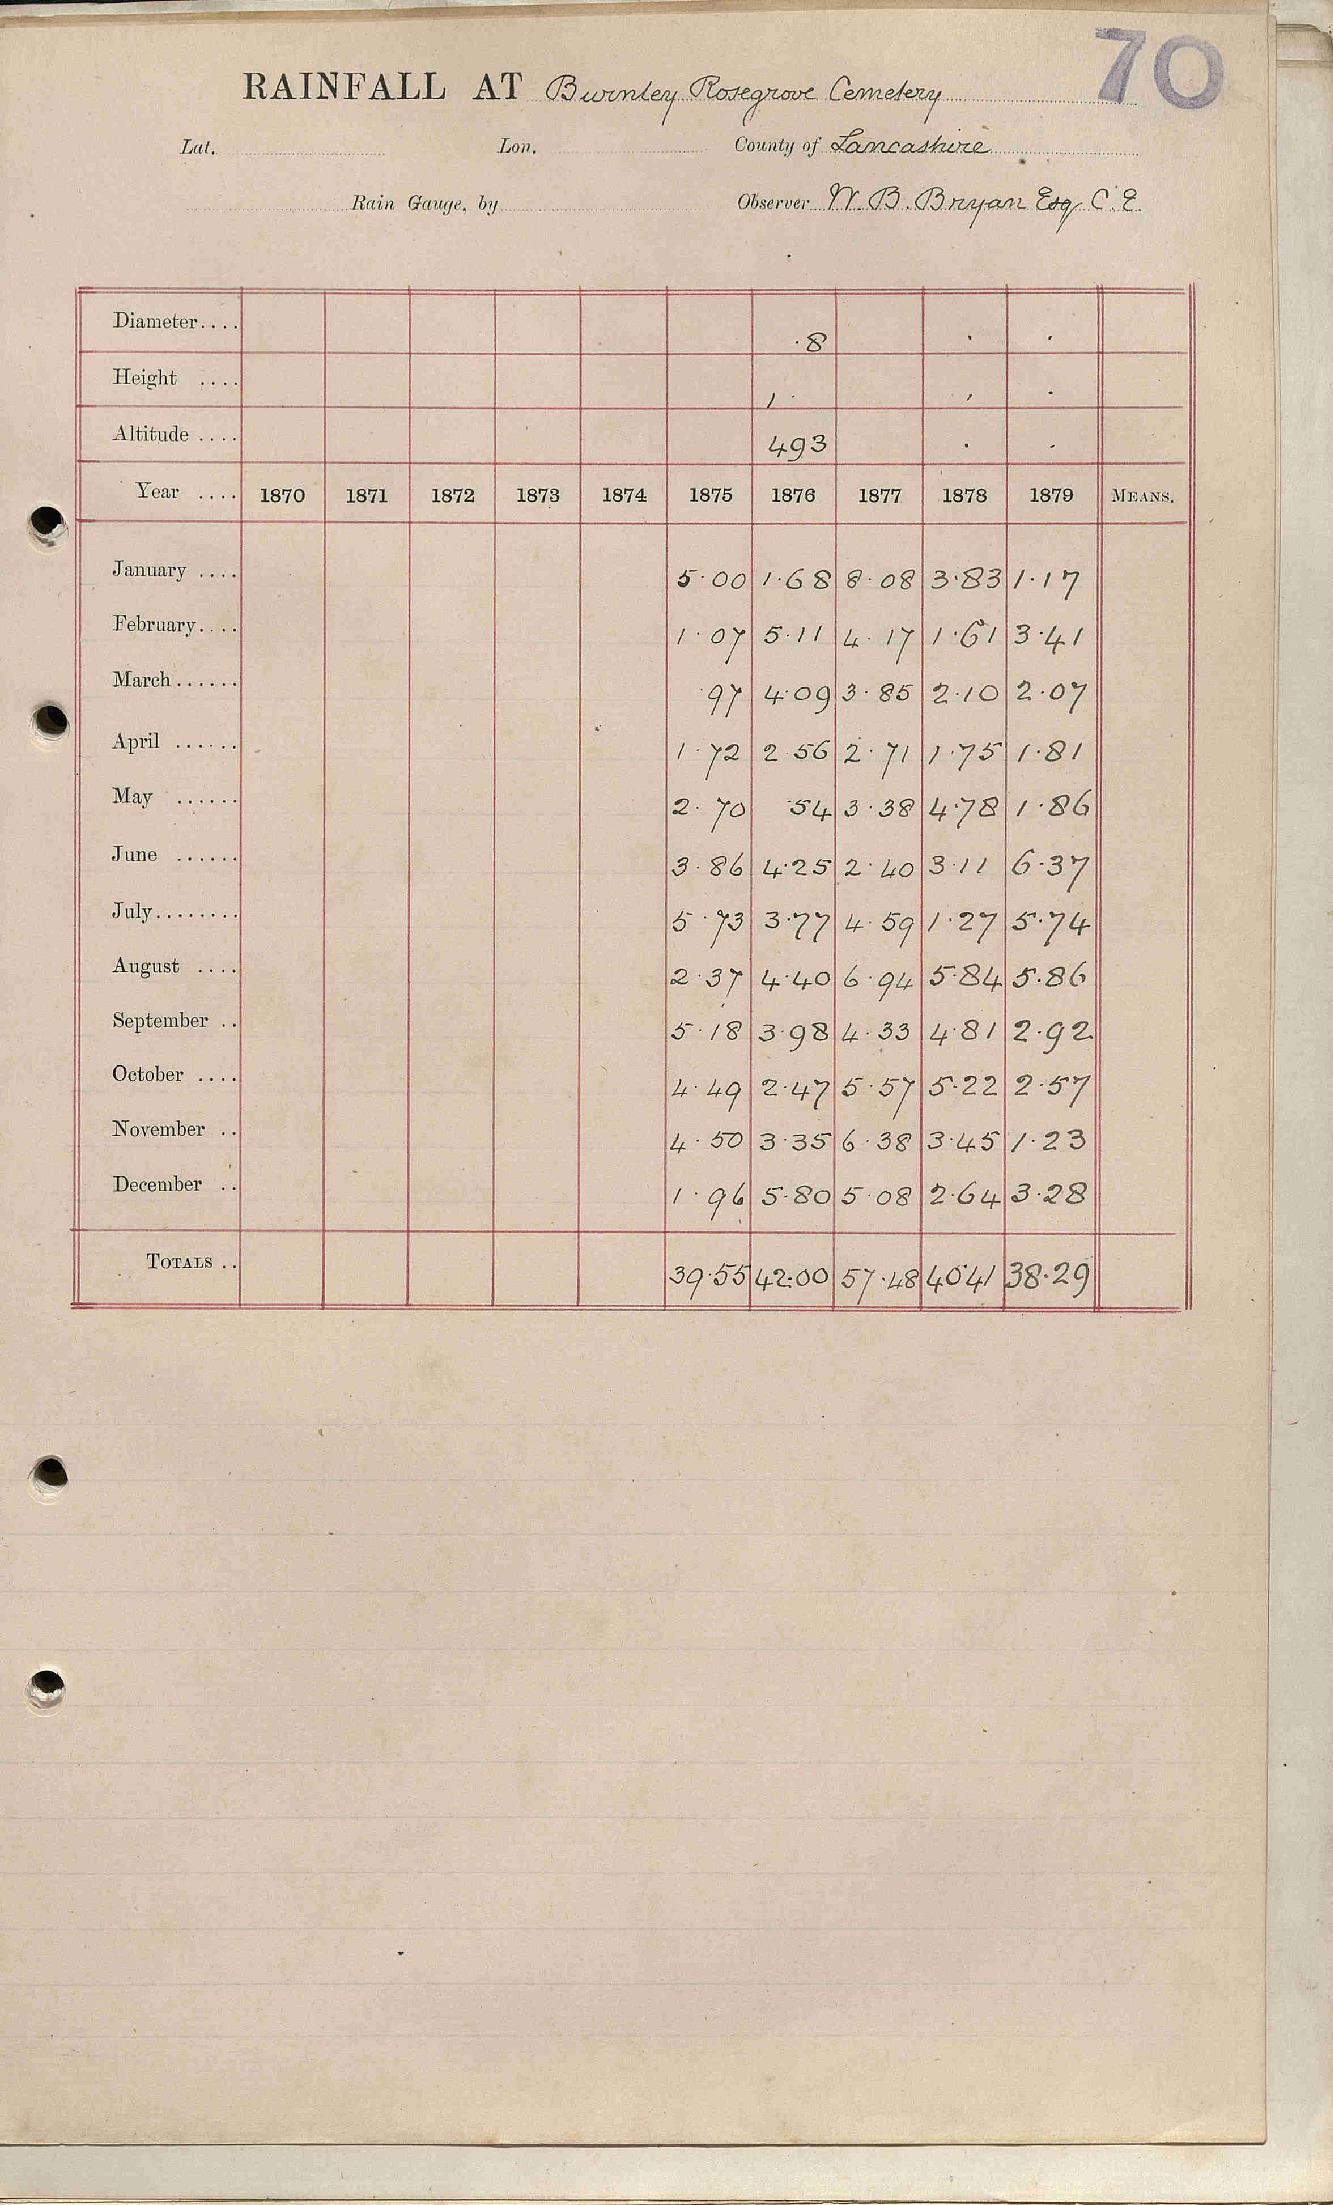 70
RAINFALL AT Burnley Rosegrove Cemetery
Lat. Lon. County of Lancashire
Rain Gauge, by Observer W. B. Bryan Esq C. E.
Diameter.... ·8 · ·
Height .... 1 · ' ·
Altitude .... 493 · ·
Year .... 1870 1871 1872 1873 1874 1875 1876 1877 1878 1879 MEANS.
January .... 5·00 1·68 8·08 3·83 1·17
February.... 1·07 5·11 4·17 1·61 3·41
March...... ·97 4·09 3·85 2·10 2·07
April ...... 1·72 2·56 2·71 1·75 1·81
May ...... 2·70 ·54 3·38 4·78 1·86
June ...... 3·86 4·25 2·40 3·11 6·37
July........ 5·73 3·77 4·59 1·27 5·74
August .... 2·37 4·40 6·94 5·84 5·86
September .. 5·18 3·98 4·33 4·81 2·92
October .... 4·49 2·47 5·57 5·22 2·57
November .. 4·50 3·35 6·38 3·45 1·23
December .. 1·96 5·80 5·08 2·64 3·28
TOTALS .. 39·55 42·00 57·48 40·41 38·29